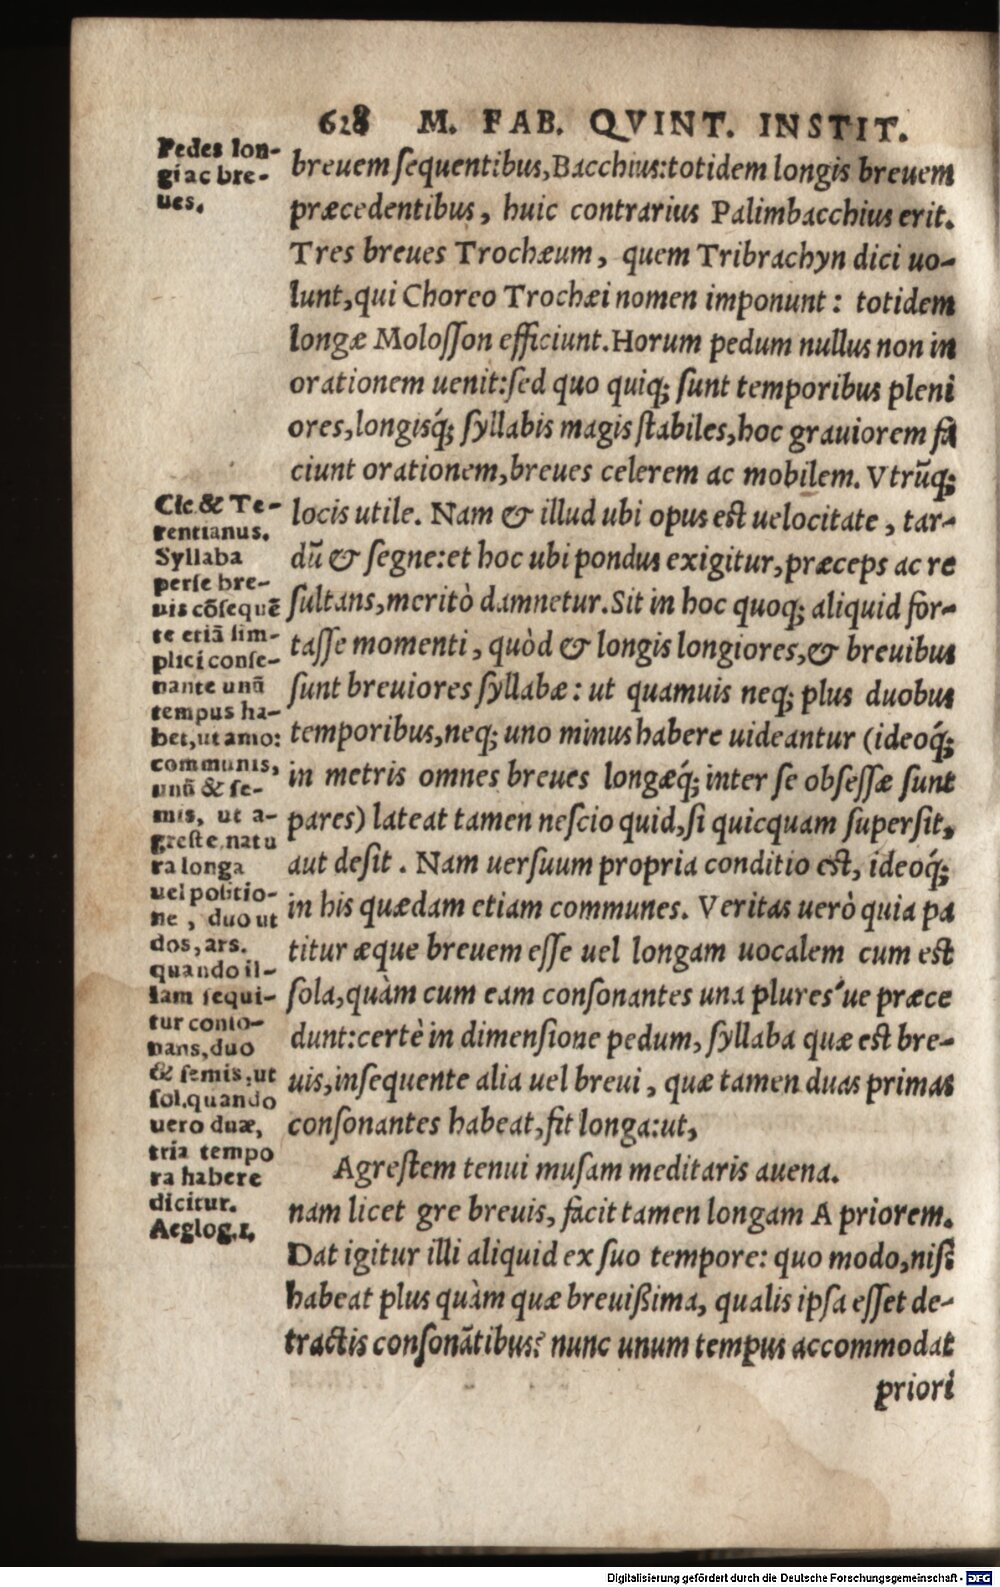 628 M. FAB. QVINT. INSTIT.
Pedes lon-
gi ac bre-
ues.
breuem sequentibus, Bacchius: totidem longis breuem
præcedentibus, huic contrarius Palimbacchius erit.
Tres breues Trochæum, quem Tribrachyn dici uo-
lunt, qui Choreo Trochæi nomen imponunt: totidem
longæ Molosson efficiunt. Horum pedum nullus non in
orationem uenit: sed quo quiq; sunt temporibus pleni
ores, longisq́; syllabis magis stabiles, hoc grauiorem fa
ciunt orationem, breues celerem ac mobilem. Vtrũq;
locis utile. Nam & illud ubi opus est uelocitate, tar-
dũ & segne: et hoc ubi pondus exigitur, præceps ac re
sultans, meritò damnetur. Sit in hoc quoq; aliquid for-
tasse momenti, quòd & longis longiores, & breuibus
sunt breuiores syllabæ: ut quamuis neq; plus duobus
temporibus, neq; uno minus habere uideantur (ideoq́;
in metris omnes breues longæq́; inter se obsessæ sunt
pares) lateat tamen nescio quid, si quicquam supersit,
aut desit. Nam uersuum propria conditio est, ideoq́;
in his quædam etiam communes. Veritas uerò quia pa
titur æque breuem esse uel longam uocalem cum est
sola, quàm cum eam consonantes una plures'ue præce
dunt: certè in dimensione pedum, syllaba quæ est bre-
uis, insequente alia uel breui, quæ tamen duas primas
consonantes habeat, fit longa: ut,
Agrestem tenui musam meditaris auena.
nam licet gre breuis, facit tamen longam A priorem.
Dat igitur illi aliquid ex suo tempore: quo modo, nisi
habeat plus quàm quæ breuißima, qualis ipsa esset de-
tractis consonãtibus? nunc unum tempus accommodat
priori
Cic. & Te-
rentianus.
Syllaba
per se bre-
uis cõsequẽ
te etiã sim-
plici conso-
nante unũ
tempus ha-
bet, ut amo:
communis,
unũ & se-
mis, ut a-
greste. natu
ra longa
uel positio-
ne, duo ut
dos, ars.
quando il-
lam sequi-
tur conso-
nans, duo
& semis, ut
sol. quando
uero duæ,
tria tempo
ra habere
dicitur.
Aeglog. 1.
Digitalisierung gefördert durch die Deutsche Forschungsgemeinschaft - DFG